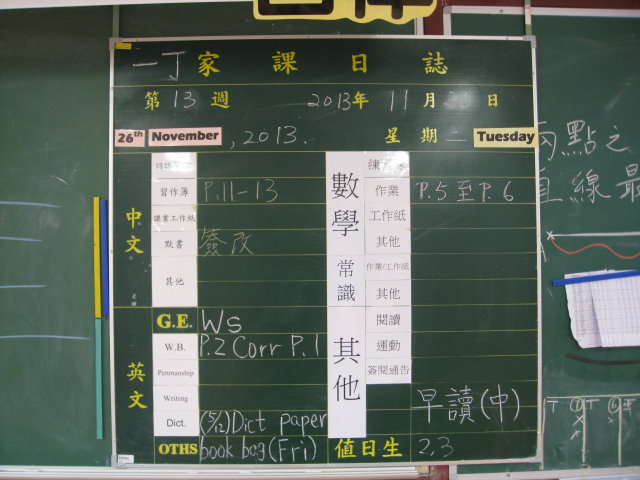 一丁家課日誌
第13週 2013年 11月 26日
26th November, 2013. 星期二 Tuesday
中文
習作簿 P.11-13
課業工作紙
默書 簽改
其他
G.E. Ws
英文
W.B. P.2 Corr P.1
Penmanship
Writing
Dict. (5/12) Dict paper
OTHS book bag (Fri)
數學
作業 P.5至P.6
工作紙
其他
常識
作業/工作紙
其他
其他
閱讀
運動
簽閱通告
早讀(中)
值日生 2,3
兩點之
直線最